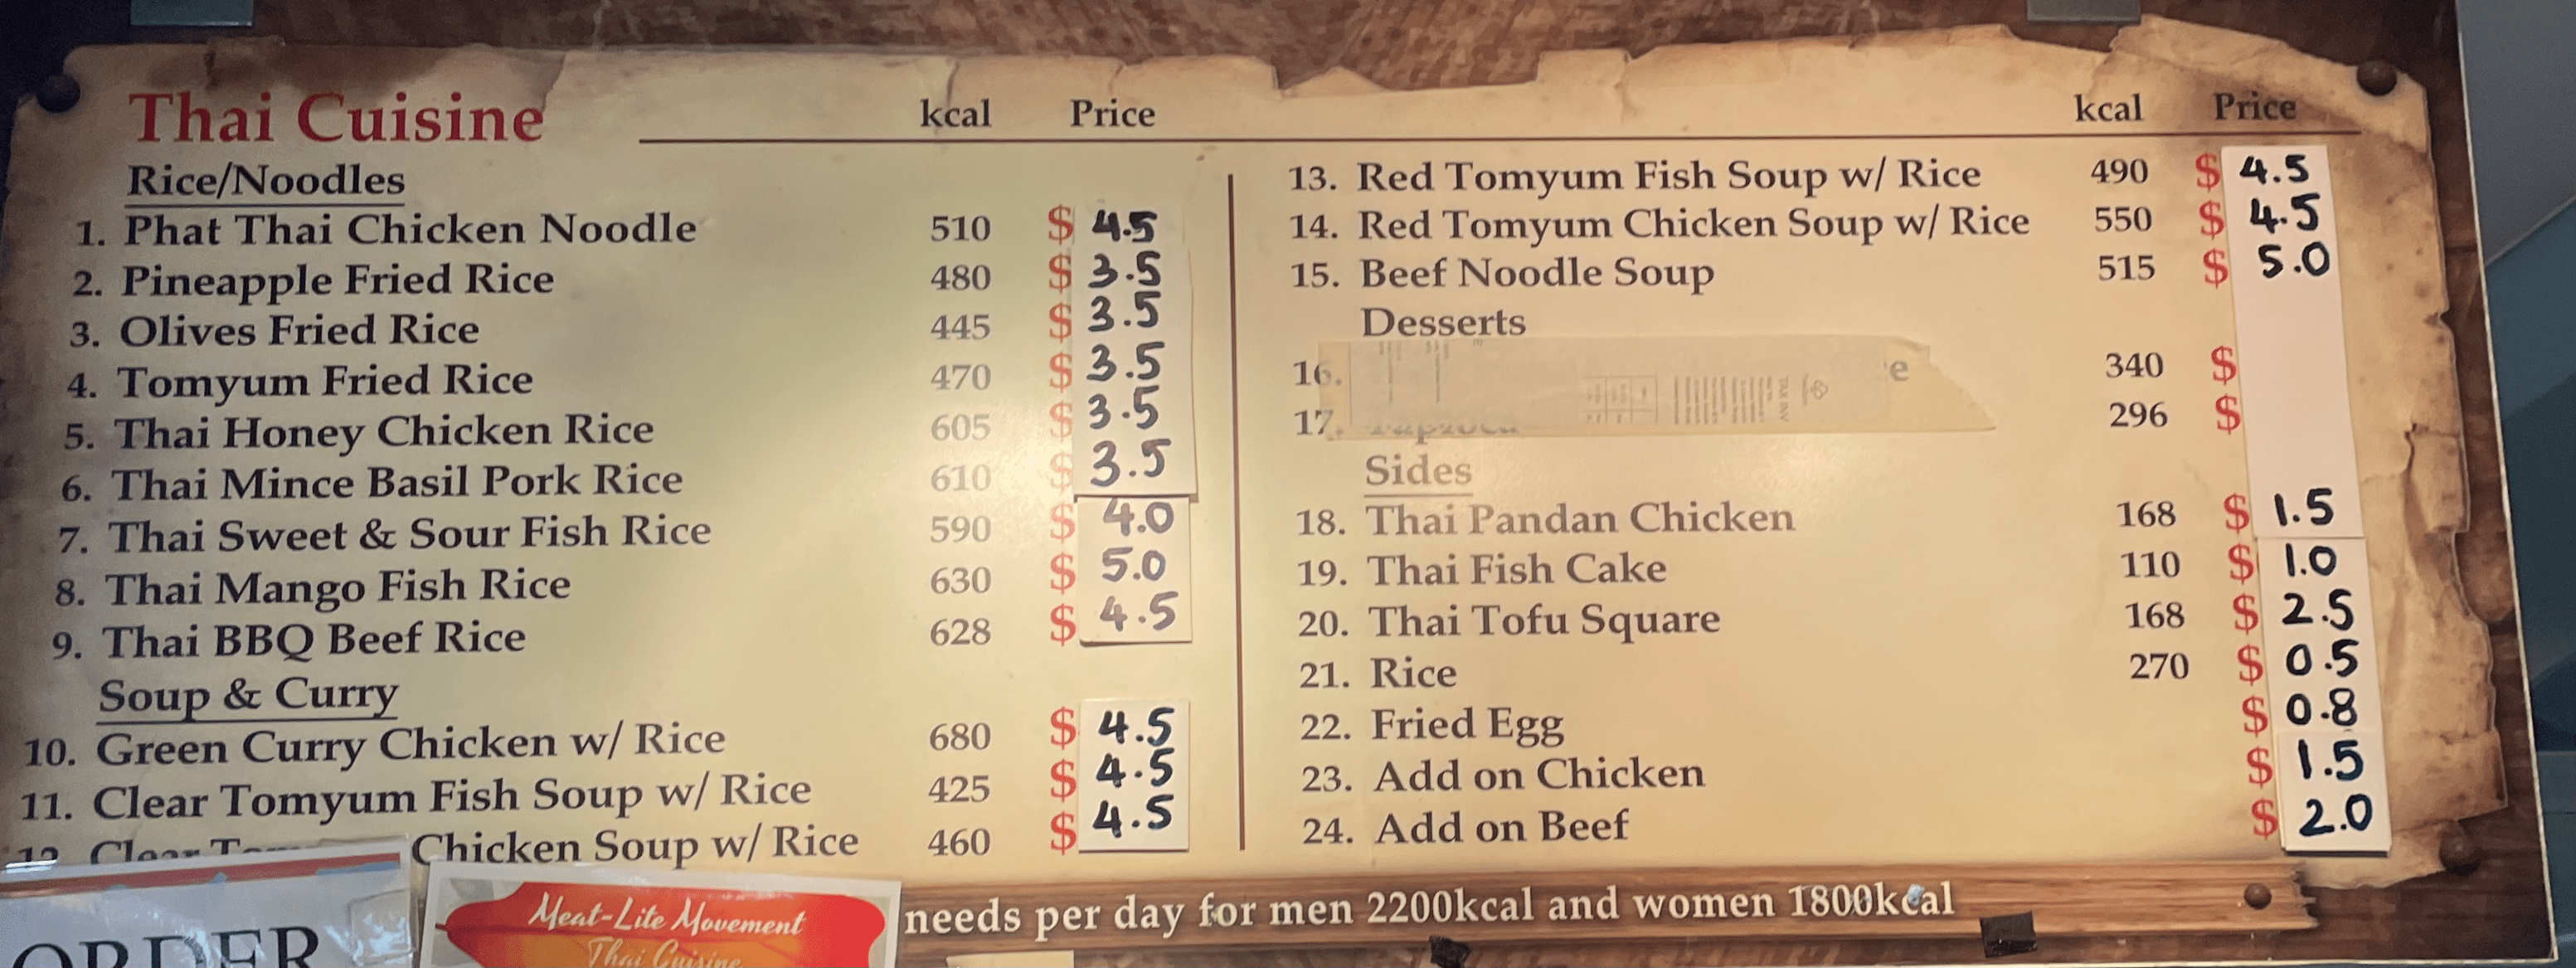 Thai Cuisine kcal Price
Rice/Noodles
1. Phat Thai Chicken Noodle 510 $ 4.5
2. Pineapple Fried Rice 480 $ 3.5
3. Olives Fried Rice 445 $ 3.5
4. Tomyum Fried Rice 470 $ 3.5
5. Thai Honey Chicken Rice 605 $ 3.5
6. Thai Mince Basil Pork Rice 610 $ 3.5
7. Thai Sweet & Sour Fish Rice 590 $ 4.0
8. Thai Mango Fish Rice 630 $ 5.0
9. Thai BBQ Beef Rice 628 $ 4.5
Soup & Curry
10. Green Curry Chicken w/ Rice 680 $ 4.5
11. Clear Tomyum Fish Soup w/ Rice 425 $ 4.5
12 Clear Chicken Soup w/ Rice 460 $ 4.5
kcal Price
13. Red Tomyum Fish Soup w/ Rice 490 $ 4.5
14. Red Tomyum Chicken Soup w/ Rice 550 $ 4.5
15. Beef Noodle Soup 515 $ 5.0
Desserts
16. 340 $
17. 296 $
Sides
18. Thai Pandan Chicken 168 $ 1.5
19. Thai Fish Cake 110 $ 1.0
20. Thai Tofu Square 168 $ 2.5
21. Rice 270 $ 0.5
22. Fried Egg $ 0.8
23. Add on Chicken $ 1.5
24. Add on Beef $ 2.0
needs per day for men 2200kcal and women 1800kcal
ORDER
Meat-Lite Movement
Thai Cuisine